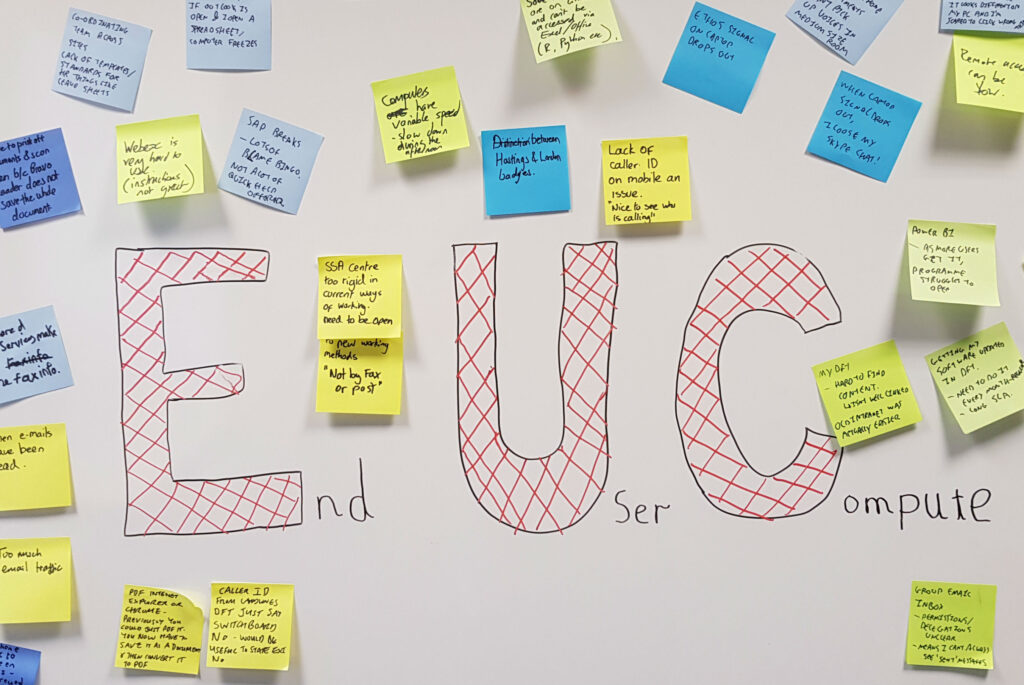 CO-ORDINATING
TEAM ACROSS
SITES
LACK OF TEMPLATES/
STANDARDS FOR
HR THINGS LIKE
LEAVE SHEETS
OPEN & I OPEN A
SPREADSHEET/
COMPUTER FREEZES
are on
and can't be
accessed via
Excel/Office
(R, Python etc).
ETHOS SIGNAL
ON LAPTOP
DROPS OUT
UP VOICES IN
MEDIUM SIZE
ROOM
MY PC AND I'M
Remote access
can be
slow.
ments & scan
b/c Bravo
does not
save the whole
document
Webex is
very hard to
use
(instructions
not great)
SAP BREAKS
- LOTS OF
BLAME BINGO.
NOT A LOT OF
QUICK TECH
Computers
have
variable speed
- slow down
during the
afternoon
Distinction between
Hastings & London
badges.
Lack of
caller ID
on mobile an
issue.
"Nice to see who
is calling"
WHEN LAPTOP
SIGNAL DROPS
OUT,
I LOOSE MY
SKYPE CHAT!
POWER BI
- AS MORE USERS
GET IT,
PROGRAMME
STRUGGLES TO
OPEN
SSA Centre
too rigid in
current ways
of working.
need to be open
to new working
methods
"Not by Fax
or post"
Services make
fax info.
MY DFT
- HARD TO FIND
CONTENT.
WELL LINKED
OLD INTRANET WAS
ACTUALLY EASIER
GETTING MY
SOFTWARE UPDATED
IN DFT.
- NEED TO DO IT
EVERY MONTH
- LONG SLA.
e-mails
have been
read.
End User Compute
Too much
email traffic
PDF INTERNET
EXPLORER OR
CHROME -
PREVIOUSLY YOU
COULD JUST PDF IT.
YOU NOW HAVE TO
SAVE IT AS A DOCUMENT
& THEN CONVERT IT
TO PDF
CALLER ID
FROM LANDLINES
DFT JUST SAY
SWITCHBOARD
NO - WOULD BE
USEFUL TO STATE EXT
NO
GROUP EMAIL
INBOX
- PERMISSIONS/
DELEGATIONS
UNCLEAR
- MEANS I CAN'T ACCESS/
SEE 'SENT' MESSAGES